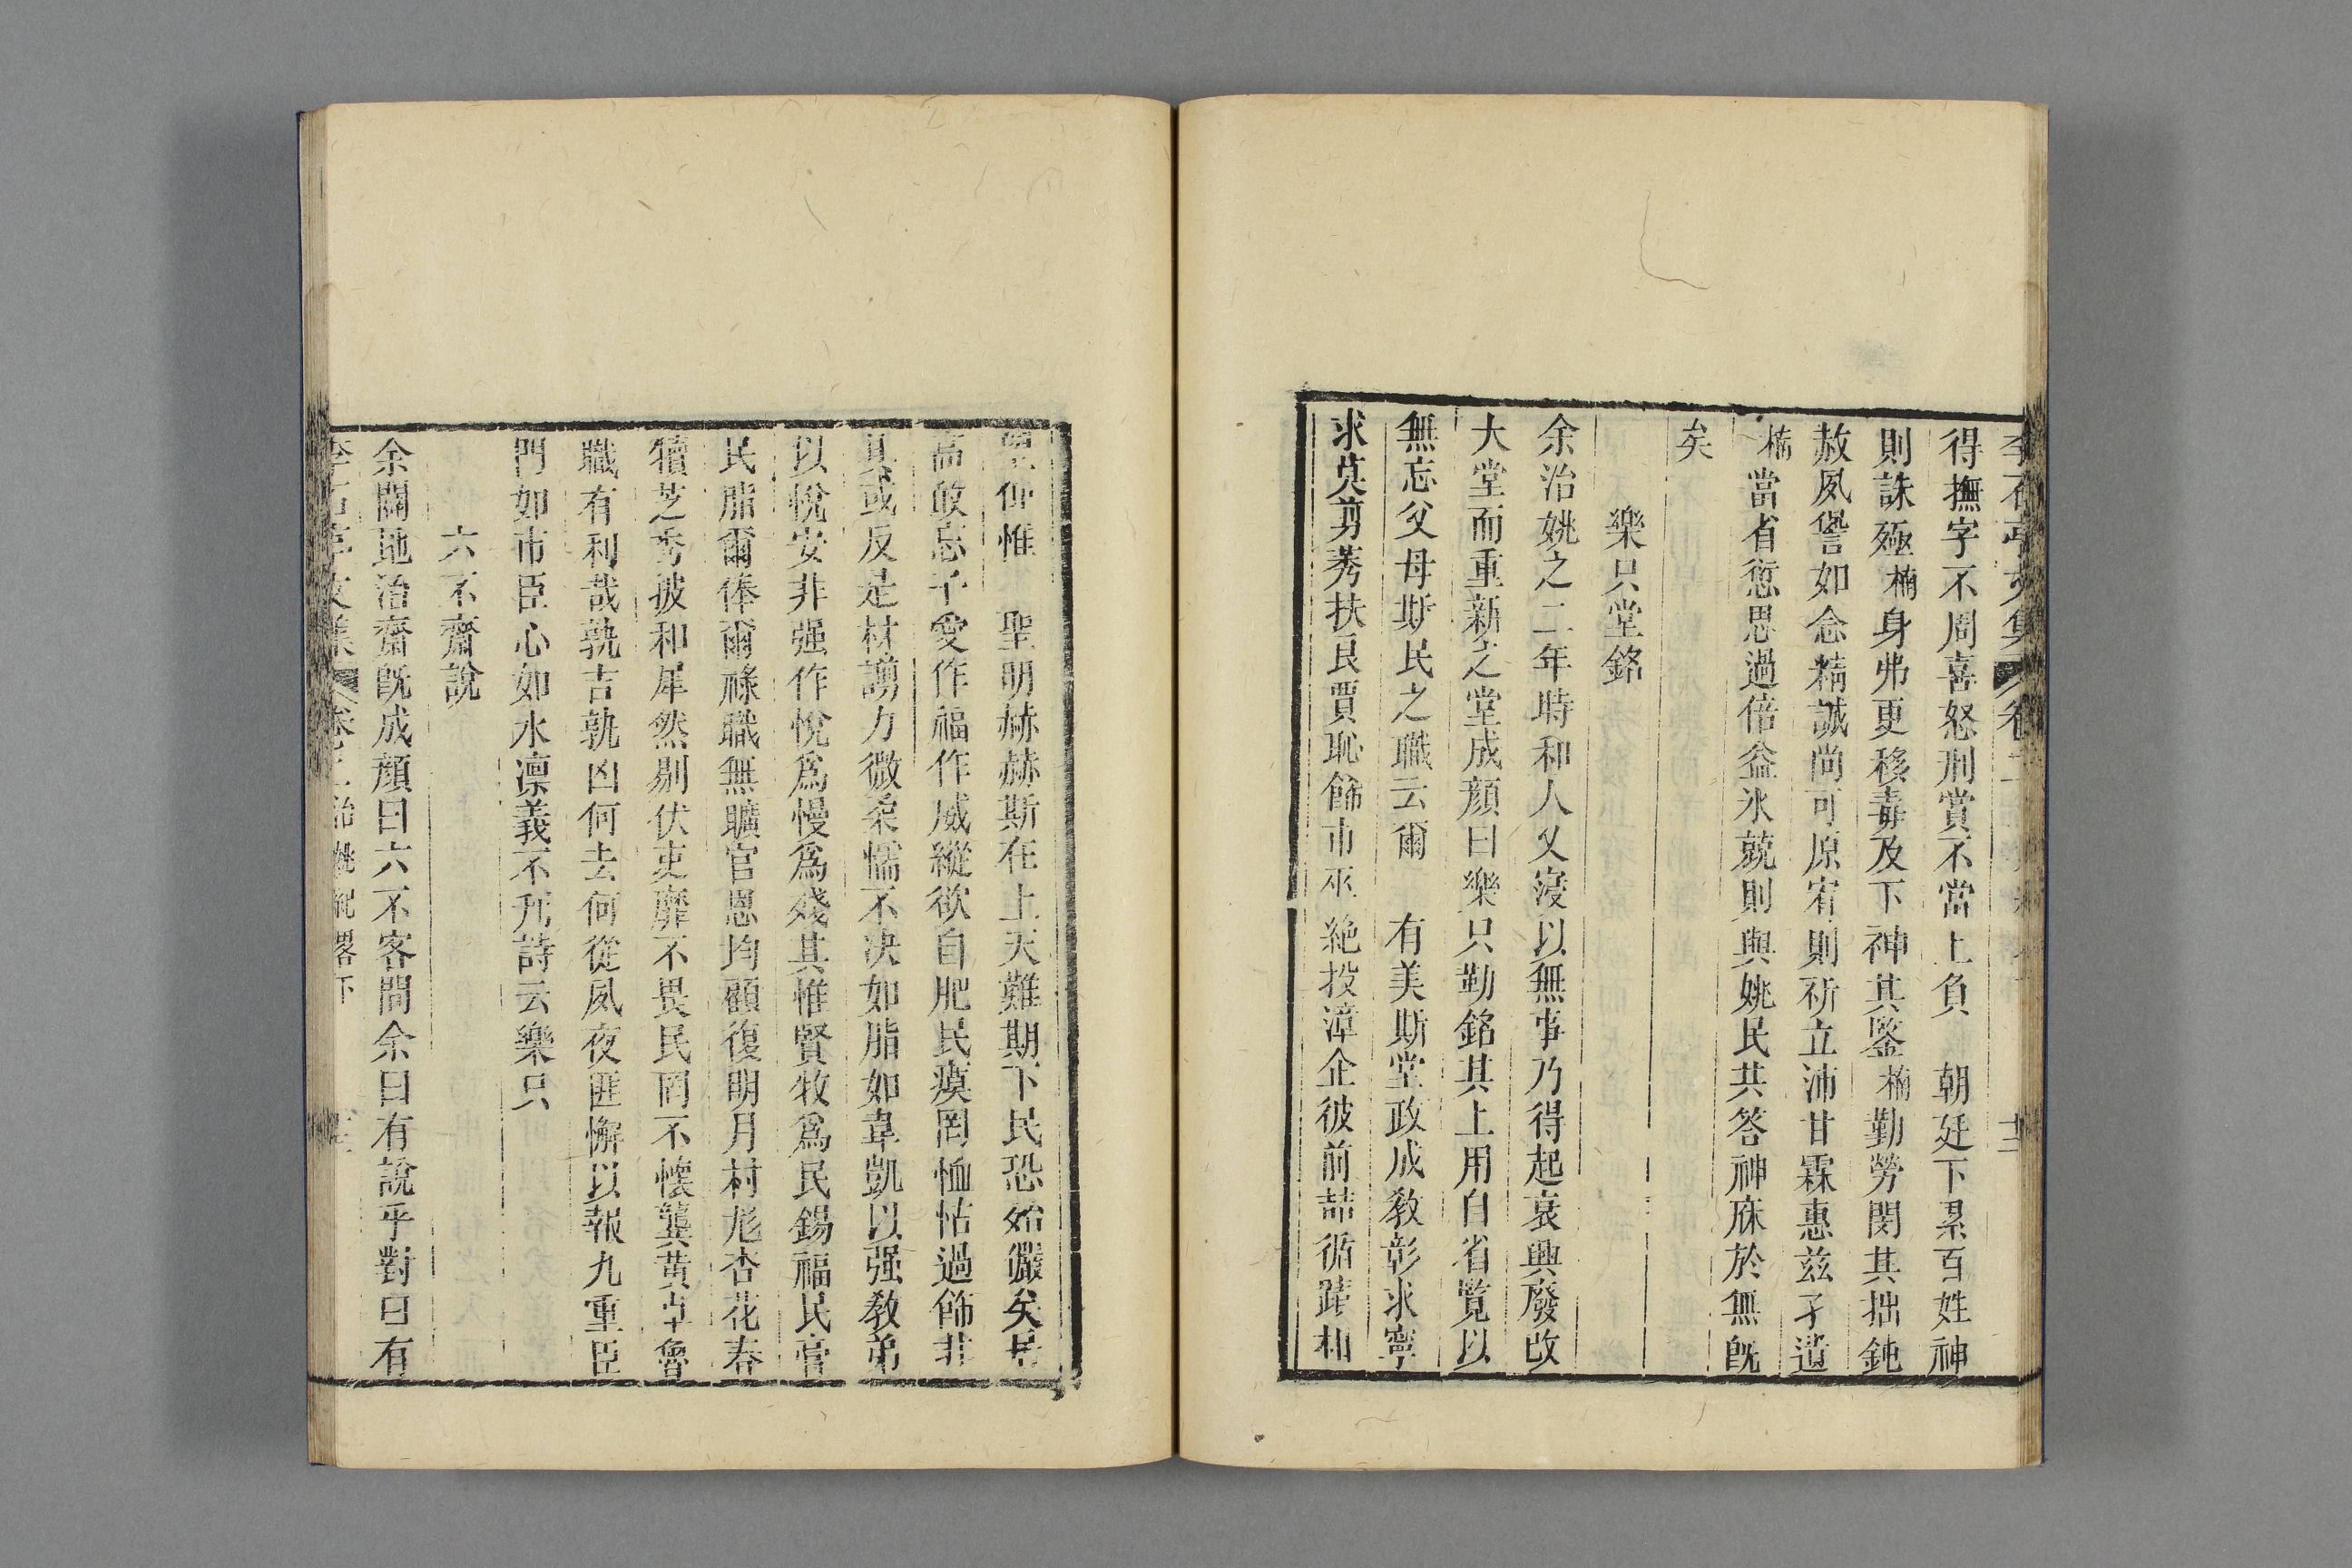 得撫字不周喜怒刑賞不當上負　朝廷下累百姓神
則誅殛楠身弗更移毒及下神其鑒楠勤勞閔其拙鈍
赦夙諐如念精誠尚可原宥則祈立沛甘霖惠茲孑遺
楠當省愆思過倍益氷兢則與姚民共答神庥於無旣
矣
樂只堂銘
余治姚之二年時和人乂寖以無事乃得起衰興廢改
大堂而重新之堂成顔曰樂只勒銘其上用自省覽以
無忘父母斯民之職云爾　有美斯堂政成敎彰求寧
求莫剪莠扶良賈恥飾市巫絶投漳企彼前喆循蹟相
望仰惟　聖明赫赫斯在上天難期下民恐殆儼矣居
高敢忘子愛作福作威縱欲自肥民瘼罔恤怙過飾非
其或反是材謭力微柔懦不决如脂如韋凱以强敎弟
以悅安非强作悅爲慢爲殘其惟賢牧爲民錫福民膏
民脂爾俸爾祿職無曠官恩均顧復明月村尨杏花春
犢芝秀披和犀然剔伏吏靡不畏民罔不懷龔黄卓魯
職有利哉孰吉孰凶何去何從夙夜匪懈以報九重臣
門如市臣心如水凛義不刓詩云樂只
六不齋說
余闢地治齋旣成顔曰六不客問余曰有說乎對曰有
李石亭文集　卷二治姚紀畧下